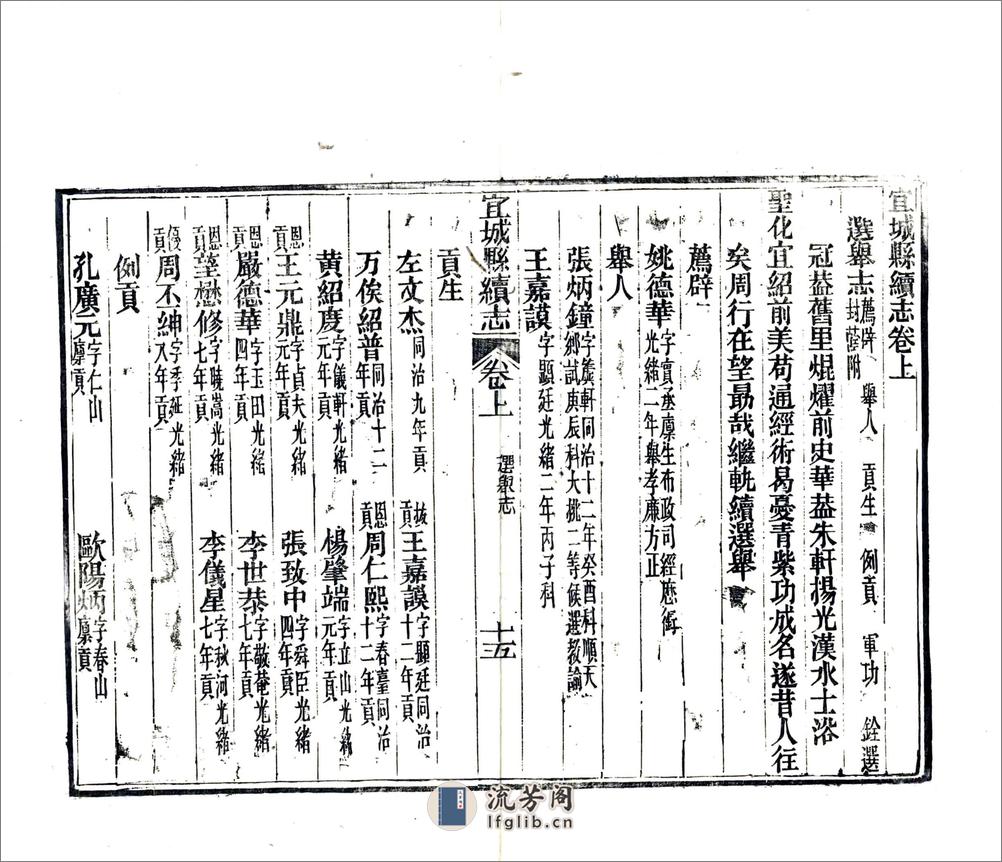 宜城縣續志卷上
選舉志 薦辟 舉人 貢生 例貢 軍功 銓選
封蔭附
冠葢舊里焜燿前史華葢朱軒揚光漢水士浴
聖化宜紹前美苟通經術曷憂青紫功成名遂昔人往
矣周行在望勗哉繼軌續選舉
薦辟
姚德華 字實丞廪生布政司經歷銜
光緒二年舉孝廉方正
舉人
張炳鐘 字 軒同治十二年癸酉科順天
鄉試庚辰科大挑二等候選敎諭
王嘉謨 字顯廷光緒二年丙子科
宜城縣續志 卷上 選舉志 十五
貢生
左文杰 同治九年貢 拔貢王嘉謨 字顯廷同治十二年貢
万俟紹普 同治十二年貢 恩貢周仁熙 字春臺同治十二年貢
黄紹度 字儀軒光緒元年貢 楊肇端 字立山光緒元年貢
恩貢王元鼎 字貞夫光緒元年貢 張致中 字舜臣光緒四年貢
恩貢嚴德華 字玉田光緒四年貢 李世恭 字敬菴光緒七年貢
恩貢 懋修 字曉嵩光緒七年貢 李儀星 字秋河光緒七年貢
優貢周丕紳 字季延光緒八年貢
例貢
孔廣元 字仁山廪貢 歐陽炳 字春山廪貢
流芳阁
lfglib.cn